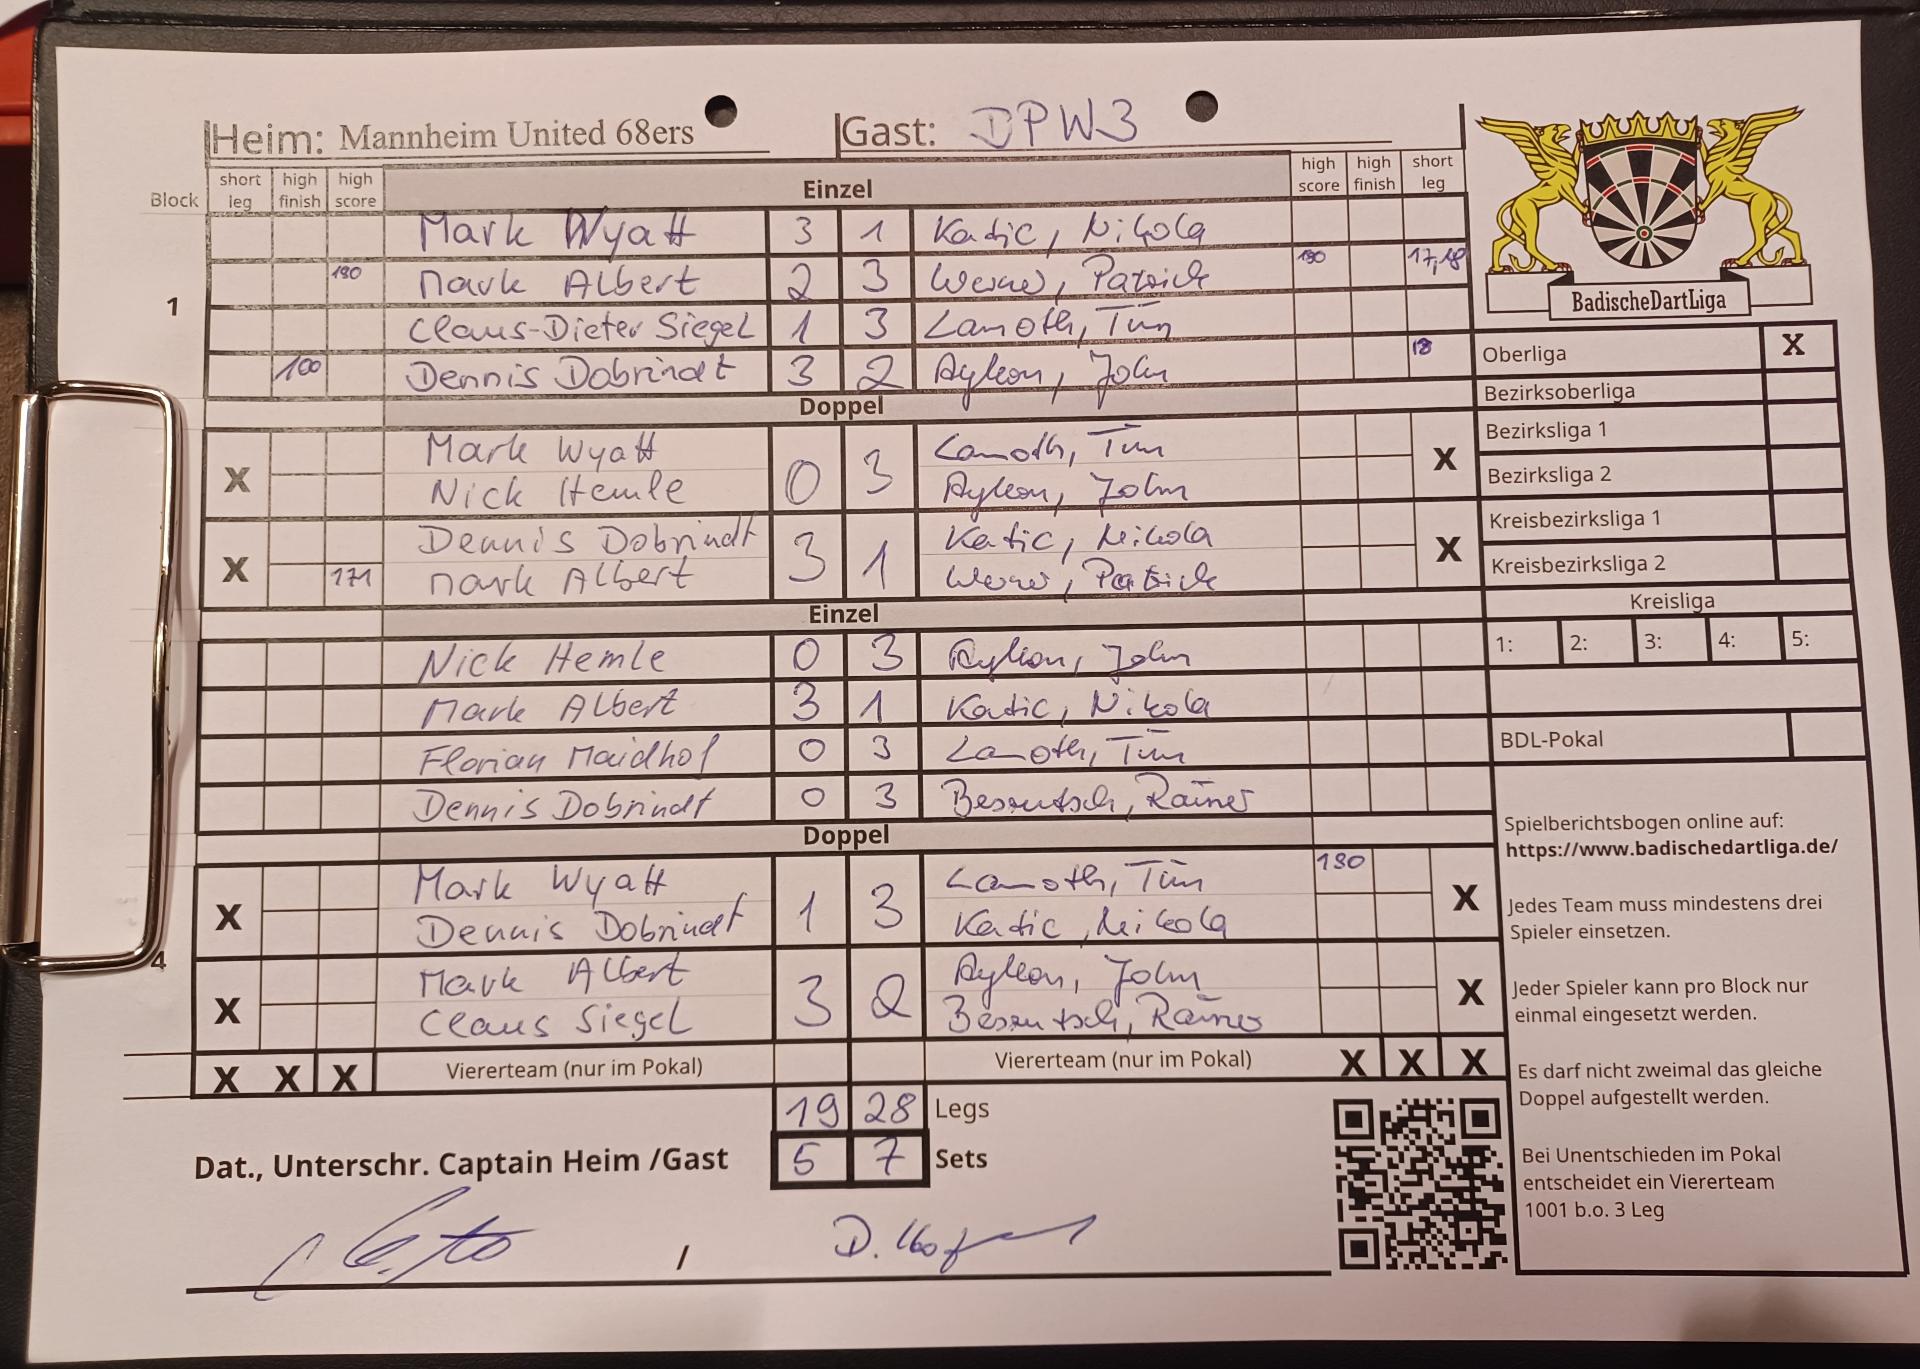 Heim: Mannheim United 68ers Gast: DPW3
Block short leg high finish high score Einzel high score high finish short leg
Mark Wyatt 3 1 Katic, Nikola
180 Mark Albert 2 3 Werner, Patrick 180 17,18
1
Claus-Dieter Siegel 1 3 Lamoth, Tim
100 Dennis Dobrindt 3 2 John 18
Doppel
Mark Wyatt Lamoth, Tim
X 0 3 X
Nick Hemle John
Dennis Dobrindt Katic, Nikola
X 3 1 X
171 Mark Albert Werner, Patrick
Einzel
Nick Hemle 0 3 John
Mark Albert 3 1 Katic, Nikola
Florian Maidhof 0 3 Lamoth, Tim
Dennis Dobrindt 0 3 Rainer
Doppel
Mark Wyatt Lamoth, Tim 180
X 1 3 X
Dennis Dobrindt Katic, Nikola
4
Mark Albert John
X 3 2 X
Claus Siegel Rainer
X X X Viererteam (nur im Pokal) Viererteam (nur im Pokal) X X X
19 28 Legs
Dat., Unterschr. Captain Heim /Gast 5 7 Sets
/ D.
BadischeDartLiga
Oberliga X
Bezirksoberliga
Bezirksliga 1
Bezirksliga 2
Kreisbezirksliga 1
Kreisbezirksliga 2
Kreisliga
1: 2: 3: 4: 5:
BDL-Pokal
Spielberichtsbogen online auf:
https://www.badischedartliga.de/
Jedes Team muss mindestens drei
Spieler einsetzen.
Jeder Spieler kann pro Block nur
einmal eingesetzt werden.
Es darf nicht zweimal das gleiche
Doppel aufgestellt werden.
Bei Unentschieden im Pokal
entscheidet ein Viererteam
1001 b.o. 3 Leg